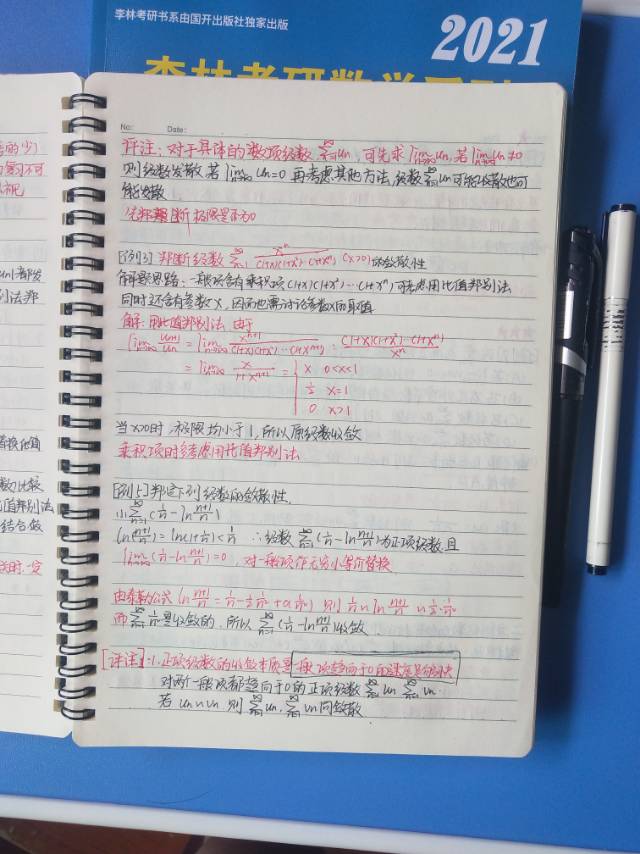 李林考研书系由国开出版社独家出版
2021
李林考研数学系列
No: Date:
评注: 对于具体的数项级数 ∑_{n=1}^∞ un, 可先求 lim_{n→∞} un, 若 lim_{n→∞} un ≠0
则级数发散 若 lim_{n→∞} un=0 再考虑其他方法, 级数 ∑_{n=1}^∞ un 可能收敛也可
能发散
先判断极限是否为0
[例3] 判断级数 ∑_{n=1}^∞ x^n/((1+x)(1+x²)…(1+x^n)) (x>0) 的敛散性
解题思路: 一般项含有乘积项 (1+x)(1+x²)…(1+x^n) 可考虑用比值判别法
同时还含有参数x, 因而也需讨论参数x的取值
解: 用比值判别法 由于
lim_{n→∞} u_{n+1}/u_n = lim_{n→∞} x^{n+1}/((1+x)(1+x²)…(1+x^{n+1})) · ((1+x)(1+x²)…(1+x^n))/x^n
= lim_{n→∞} x/(1+x^{n+1}) = { x 0<x<1
1/2 x=1
0 x>1
当x>0时, 极限均小于1, 所以原级数收敛
乘积项时多考虑用比值判别法
[例5] 判定下列级数的敛散性
(1) ∑_{n=1}^∞ (1/n - ln (n+1)/n)
ln((n+1)/n) = ln(1+1/n) < 1/n ∴级数 ∑_{n=1}^∞ (1/n - ln (n+1)/n) 为正项级数, 且
lim_{n→∞} (1/n - ln (n+1)/n) = 0, 对一般项作无穷小等价替换
由泰勒公式 ln (n+1)/n = 1/n - 1/2·1/n² + o(1/n²) 则 1/n - ln (n+1)/n ∼ 1/2·1/n²
而 ∑_{n=1}^∞ 1/n² 是收敛的, 所以 ∑_{n=1}^∞ (1/n - ln (n+1)/n) 收敛
[评注]: 1. 正项级数的收敛本质是一般项趋向于0的速度足够快
对两个一般项都趋向于0的正项级数 ∑_{n=1}^∞ un ∑_{n=1}^∞ vn
若 un∼vn 则 ∑_{n=1}^∞ un, ∑_{n=1}^∞ vn 同敛散